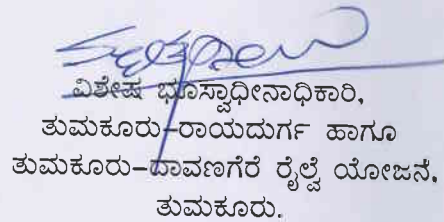 ವಿಶೇಷ ಭೂಸ್ವಾಧೀನಾಧಿಕಾರಿ,
ತುಮಕೂರು-ರಾಯದುರ್ಗ ಹಾಗೂ
ತುಮಕೂರು-ದಾವಣಗೆರೆ ರೈಲ್ವೆ ಯೋಜನೆ,
ತುಮಕೂರು.